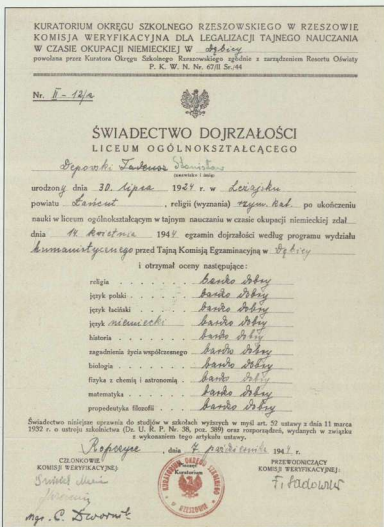 KURATORIUM OKRĘGU SZKOLNEGO RZESZOWSKIEGO W RZESZOWIE
KOMISJA WERYFIKACYJNA DLA LEGALIZACJI TAJNEGO NAUCZANIA
W CZASIE OKUPACJI NIEMIECKIEJ W Dębicy
powołana przez Kuratora Okręgu Szkolnego Rzeszowskiego zgodnie z zarządzeniem Resortu Oświaty
P. K. W. N. Nr. 67/II Sr./44
Nr. II-12/a
ŚWIADECTWO DOJRZAŁOŚCI
LICEUM OGÓLNOKSZTAŁCĄCEGO
Depowski Tadeusz Stanisław
(nazwisko i imię)
urodzony dnia 30. lipca 1924 r. w Leżajsku
powiatu Łańcut, religii (wyznania) rzym. kat. po ukończeniu
nauki w liceum ogólnokształcącym w tajnym nauczaniu w czasie okupacji niemieckiej zdał
dnia 14. kwietnia 1944 egzamin dojrzałości według programu wydziału
humanistycznego przed Tajną Komisją Egzaminacyjną w Dębicy
i otrzymał oceny następujące:
religia bardzo dobry
język polski bardzo dobry
język łaciński bardzo dobry
język niemiecki bardzo dobry
historia bardzo dobry
zagadnienia życia współczesnego bardzo dobry
biologia bardzo dobry
fizyka z chemią i astronomią bardzo dobry
matematyka bardzo dobry
propedeutyka filozofii bardzo dobry
Świadectwo niniejsze uprawnia do studiów w szkołach wyższych w myśl art. 52 ustawy z dnia 11 marca
1932 r. o ustroju szkolnictwa (Dz. U. R. P. Nr. 38, poz. 389) oraz rozporządzeń, wydanych w związku
z wykonaniem tego artykułu ustawy.
Ropczyce, dnia 7 października 194
CZŁONKOWIE
KOMISJI WERYFIKACYJNEJ:
PRZEWODNICZĄCY
KOMISJI WERYFIKACYJNEJ:
mgr. C. Dwornik